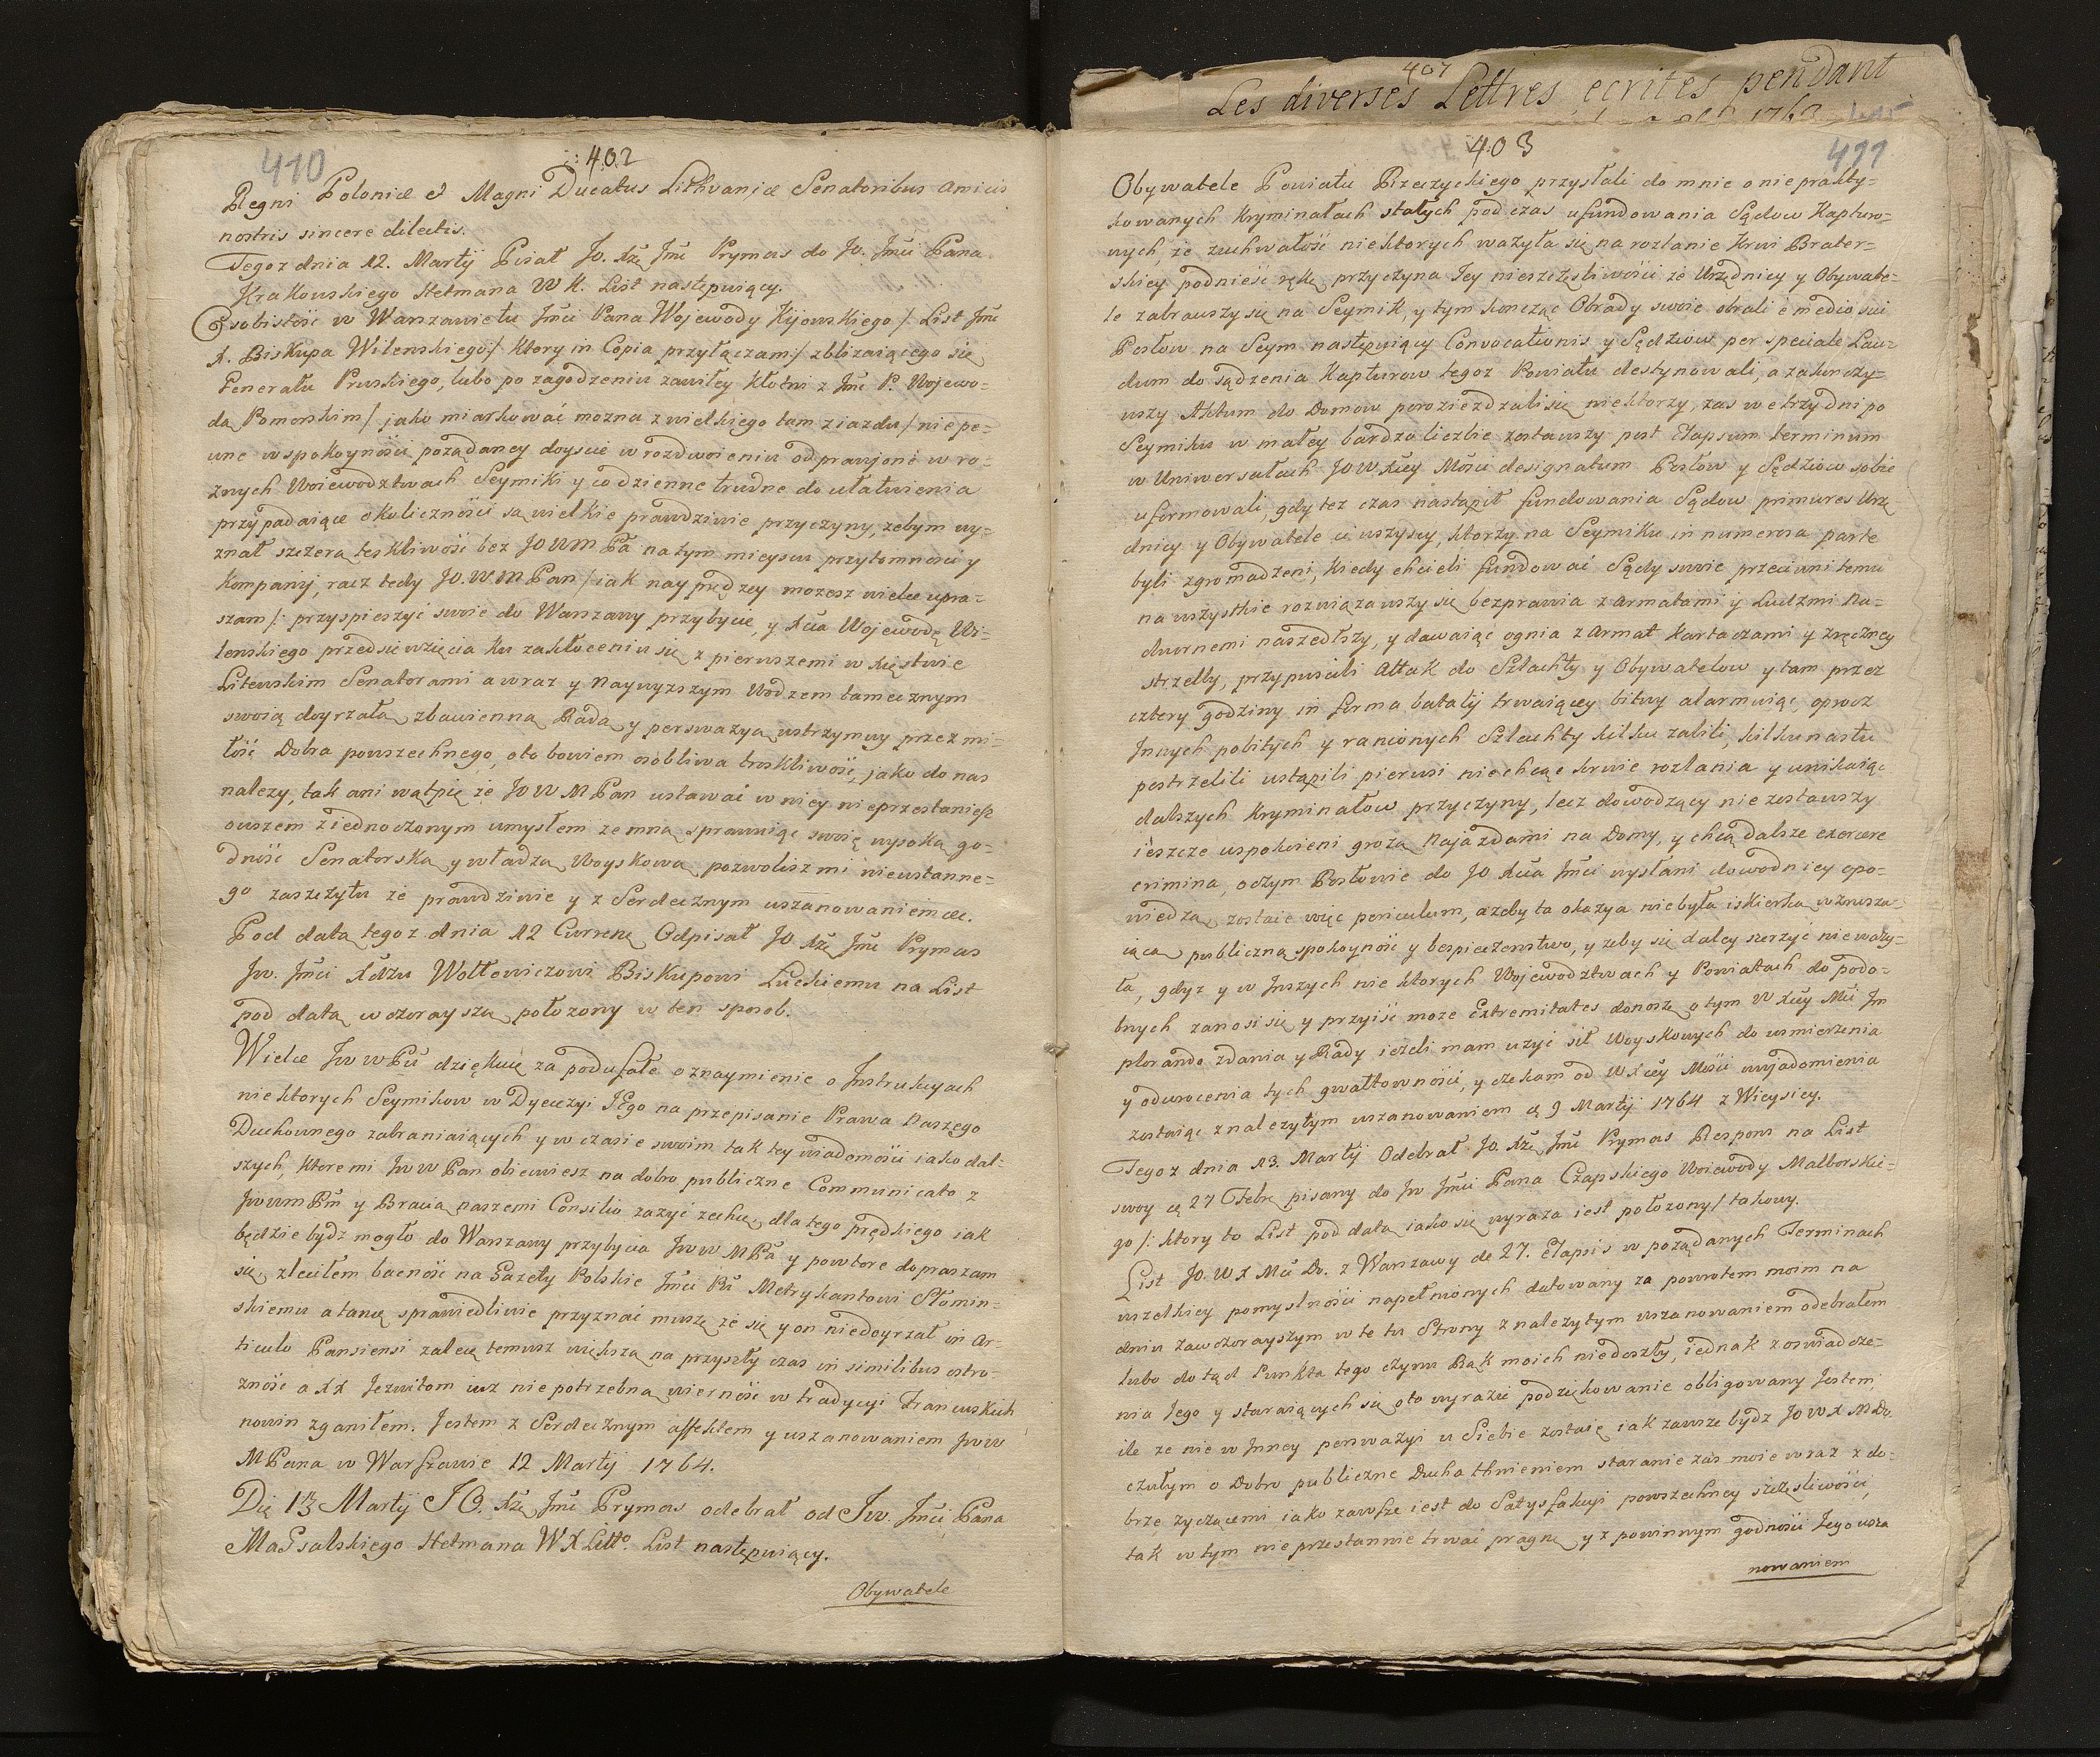 410
402
Regni Poloniæ et Magni Ducatus Lithvaniæ Senatoribus amicis
nostris sincere dilectis.
Tegoz dnia 12. Martij Pisał Jo. Xże Jmć Prymas do Jo. Jmći Pana
Krakowskiego Hetmana W K. List następuiący.
Osobistość w Warszawie tu Jmći Pana Wojewody Kijowskiego / List Jmć
X. Biskupa Wilenskiego / ktory in Copia przyłączam / zblizaiącego się
Generału Pruskiego, lubo po zagodzeniu zawiłey kłotni z Jmć P. Wojewo=
dą Pomorskim / jako miarkować mozna z wielkiego tam ziazdu / nie pe=
wne w spokoyności pożądaney doyscie w rozdwoieniu odprawione w ro=
znych Woiewodztwach Seymiki y codzienne trudne do ułatwienia
przypadaiące okoliczności są wielkie prawdziwie przyczyny, zebym wy=
znał szczerą teskliwość bez JOWM Pa na tym mieyscu przytomności y
kompanij, racz tedy JO. W M Pan / iak nayprędzey mozesz wielce upra=
szam /: przyspieszyć swoie do Warszawy przybycie, y Xcia Wojewodę Wi=
lenskiego przedsiewzięcia ku zakłoceniu się z pierwszemi w Xięstwie
Litewskim Senatorami a wraz y Naywyzszym Wodzem tamecznym
swoią doyrzałą zbawienną Radą y perswazyą wstrzymuy przez mi=
łość Dobra powszechnego, oto bowiem osobliwa troskliwość, jako do nas
nalezy, tak ani wątpię że JO W M Pan ustawać w niey nieprzestaniesz
owszem ziednoczonym umysłem ze mną sprawuiąc swoię wysoką go=
dność Senatorską y władzą Woyskową pozwolisz mi nieustanne=
go zaszczytu że prawdziwie y z Serdecznym uszanowaniem &c.
Pod datą tegoz dnia 12 Currentis Odpisał JO. Xże Jmć Prymas
Jw. Jmći Xdzu Wołłowiczowi Biskupowi Łuckiemu na List
pod datą wczorayszą położony w ten sposob.
Wielce Jw W Pu dziękuię za poduf̣ałe oznaymienie o Instrukcyach
niektorych Seymikow w Dyecezyi JEgo na przepisanie Prawa Naszego
Duchownego zabraniaiących y w czasie swoim tak tey wiadomości iako dal=
szych, ktoremi Jw W Pan obiecuiesz na dobro publiczne Communicato z
JwWmPm y Bracią naszemi Consilio zazyć zechcę, dlatego prędkiego iak
będzie bydz mogło do Warszawy przybycia JwW M Pa y powtore dopraszam
się, zleciłem baczność na Gazety Polskie Jmći Pu Metrykantowi Słomin=
skiemu a tandem sprawiedliwie przyznać muszę że się y on niedoyrzał in Ar=
ticulo Parisiensi zalecę temusz większą na przyszły czas in similibus ostro=
zność a XX Jezuitom iuz niepotrzebną wierność w tradycyi Francuskich
nowin zganiłem. Jestem z Serdecznym affektem y uszanowaniem JwW
MPana w Warszawie 12 Martij 1764.
Die 13 Martij JO. Xże Jmć Prymas odebrał od Jw. Jmći Pana
Massalskiego Hetmana W X Litto. List następuiący.
Obywatele
407
Les diverses Lettres ecrites pendant
403
411
Obywatele Powiatu Rzeczyckiego przysłali do mnie o nieprakty=
kowanych kryminałach stałych podczas ufundowania Sądow Kapturo=
wych że zuchwałość niektorych ważyła się na rozlanie Krwi Brater=
skiey podnieść rękę, przyczyna Jey nieszczęsliwości że Urzędnicy y Obywate=
le zabrawszy się na Seymik, y tym koncząc Obrady swoie obrali e medio sui
Posłow na Seym następuiący Convocationis y Sędziow per speciale Lau=
dum do sądzenia Kapturow tegoz Powiatu destynowali, a zakonczy=
wszy Aktum do Domow porozieżdzali się niektorzy, zas we trzy dni po
Seymiku w małey bardzo liczbie zostawszy post elapsum terminum
w Uniwersałach JO W Xcey Mości designatum Posłow y Sędziow sobie
uformowali, gdy tez czas nastąpił fundowania Sądow primores Urzę=
dnicy y Obywatele ci wszyscy, ktorzy na Seymiku in numerosa parte
byli zgromadzeni, kiedy chcieli fundować Sądy swoie przeciwni temu
na wszystkie rozwiązawszy się bezprawia z Armatami y Ludzmi Na=
dwornemi naszedłszy, y dawaiąc ognia z Armat Kartaczami y z ręczney
strzelby, przypuscili Attak do Szlachty y Obywatelow y tam przez
cztery godziny in forma batalij trwaiącey bitwy alarmuiąc, oprocz
Innych pobitych y ranionych Szlachty kilku zabili, kilkunastu
postrzelili ustąpili pierwsi niechcąc krwie rozlania y unikaiąc
dalszych Kryminałow przyczyny, lecz dowodzący nie zostawszy
ieszcze uspokoieni grożą Najazdami na Domy, y chcą dalsze exercere
crimina, o czym Posłowie do JO Xcia Jmći wysłani dowodniey opo=
wiedzą, zostaie więc periculum, azeby ta okazya nie była iskierką wzrusza=
iącą publiczną spokoyność y bespieczenstwo, y zeby się daley szerzyć nie wazy=
ła, gdyz y w Inszych niektorych Wojewodztwach y Powiatach do podo=
bnych zanosi się y przyiść moze Extremitates donoszę o tym W Xcey Mći Im
plorando zdania y Rady iezeli mam uzyć sił Woyskowych do usmierzenia
y odwrocenia tych gwałtowności, y czekam od W Xcey Mości uwjadomienia
zostaiąc z nalezytym uszanowaniem d. 9 Martij 1764 z Wicysicy.
Tegoz dnia 13. Martij Odebrał Jo. Xże Jmć Prymas Respons na List
swoy d. 27 Febr. pisany do Jw Jmći Pana Czapskiego Woiewody Malborskie=
go /: ktory to List pod datą iako się wyraza iest położony / takowy.
List JO. W X Mći Do. z Warszawy de 27. Elapsis w pożądanych Terminach
wszelkiey pomyslności napełnionych datowany za powrotem moim na
dniu zawczorayszym w te tu Strony z nalezytym uszanowaniem odebrałem
lubo dotąd Punkta tego czynu Rąk moich niedoszły, iednak z oswiadcze=
nia Jego y staraiących się o to wyrazie podziękowanie obligowany Jestem,
ile ze nie w Inney perswazyi u Siebie zostaię iak zawsze bydz JO W X M Do.
czułym o Dobro publiczne Ducha tchnieniem staranie zas moie wraz z do=
brze zyczącemi iako zawsze iest do Satysfakcyi powszechney szczęsliwości,
tak w tym nieprzestannie trwać pragnę y z powinnym godności Jego usza
nowaniem